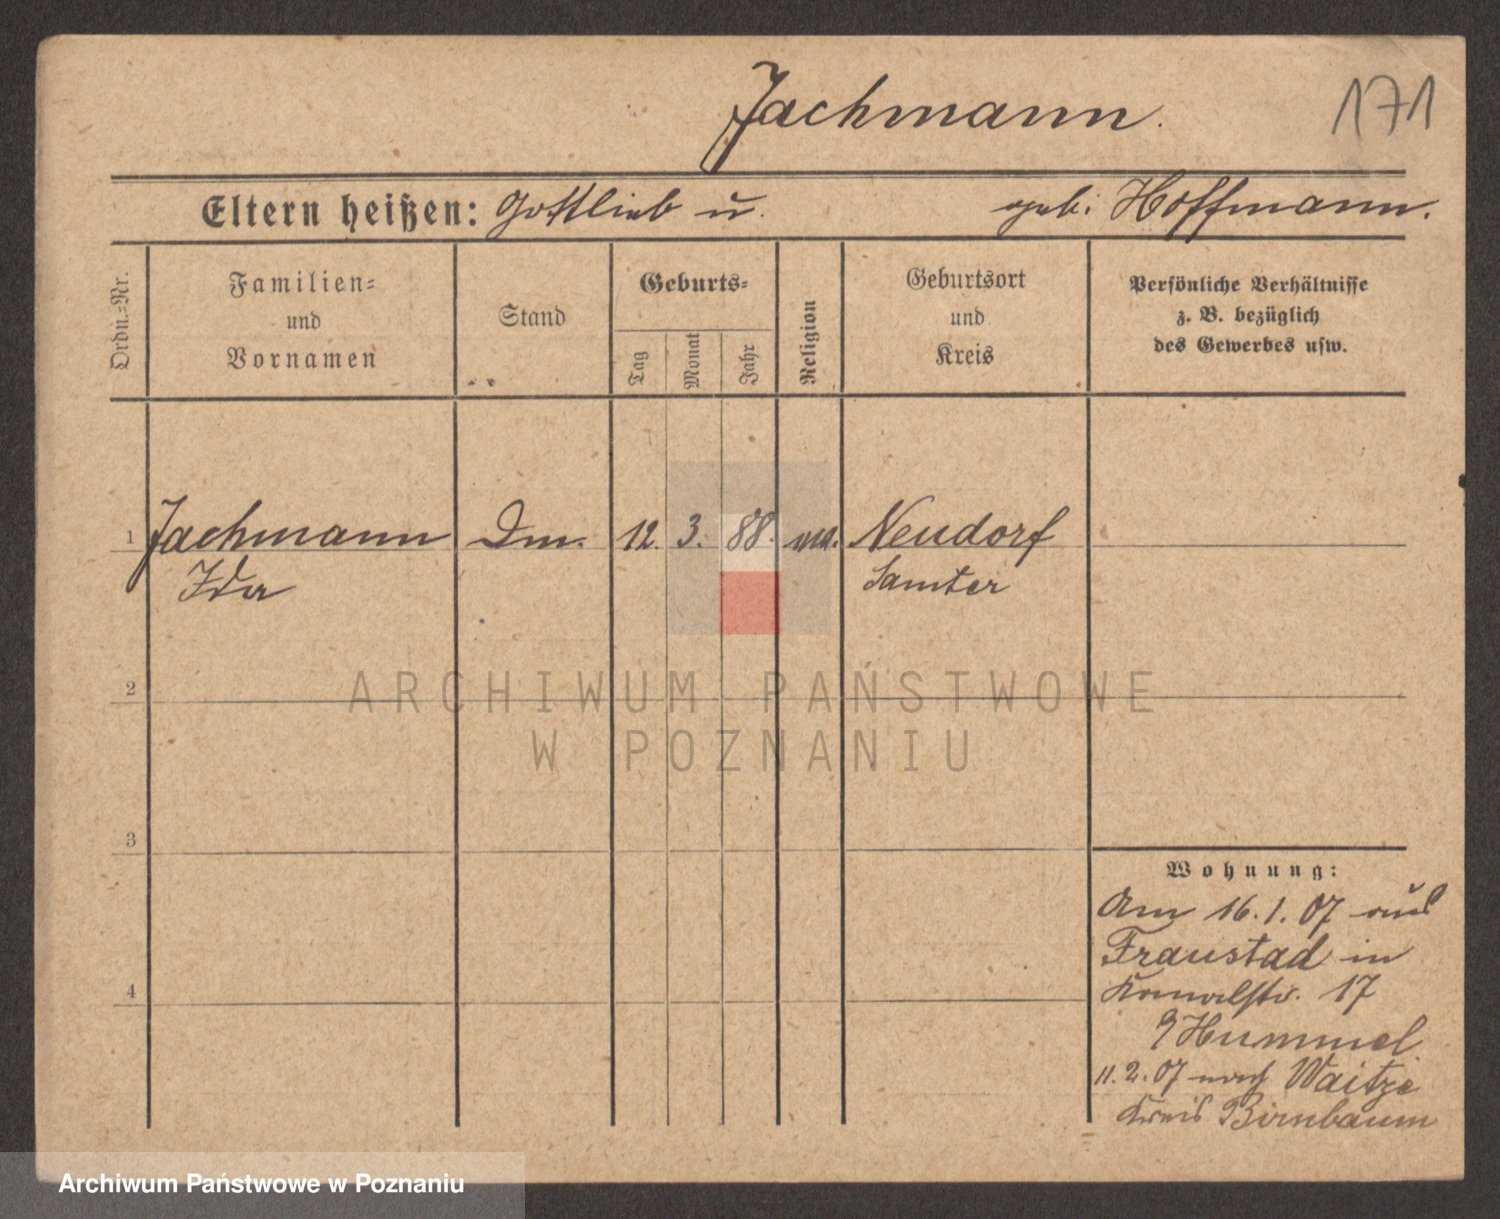 Jachmann.
171
Eltern heißen: Gottlieb u. geb. Hoffmann.
Ordn.-Nr.
Familien-
und
Vornamen
Stand
Geburts-
Tag
Monat
Jahr
Religion
Geburtsort
und
Kreis
Persönliche Verhältnisse
z. B. bezüglich
des Gewerbes usw.
1 Jachmann 12. 3. 88. Neudorf
Ida Samter
2
ARCHIWUM PAŃSTWOWE
W POZNANIU
3
Wohnung:
Am 16.1.07 aus
Fraustad in
4
Kanalstr. 17
Hummel
11.2.07 nach Waitze
Kreis Birnbaum
Archiwum Państwowe w Poznaniu